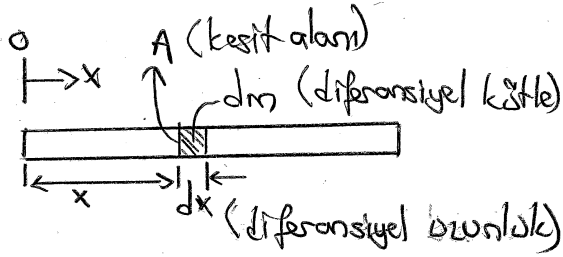 O
A (kesit alanı)
x
dm (diferansiyel kütle)
x
dx
(diferansiyel uzunluk)